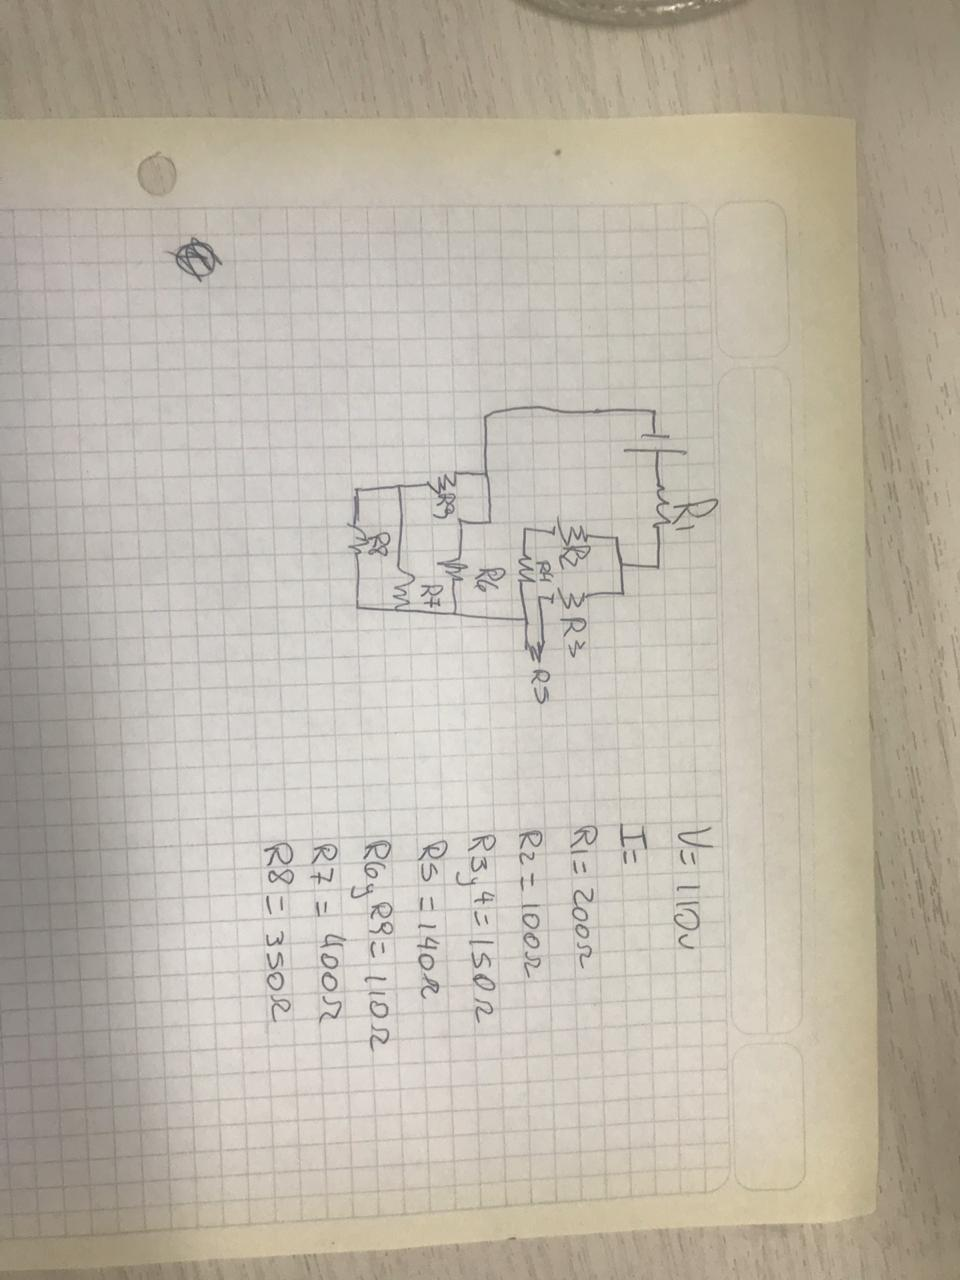 R1
R2
R3
R4
R5
R6
R7
R8
R9
V=110v
I=
R1=200Ω
R2=100Ω
R3y4=150Ω
R5=140Ω
R6yR9=110Ω
R7=400Ω
R8=350Ω